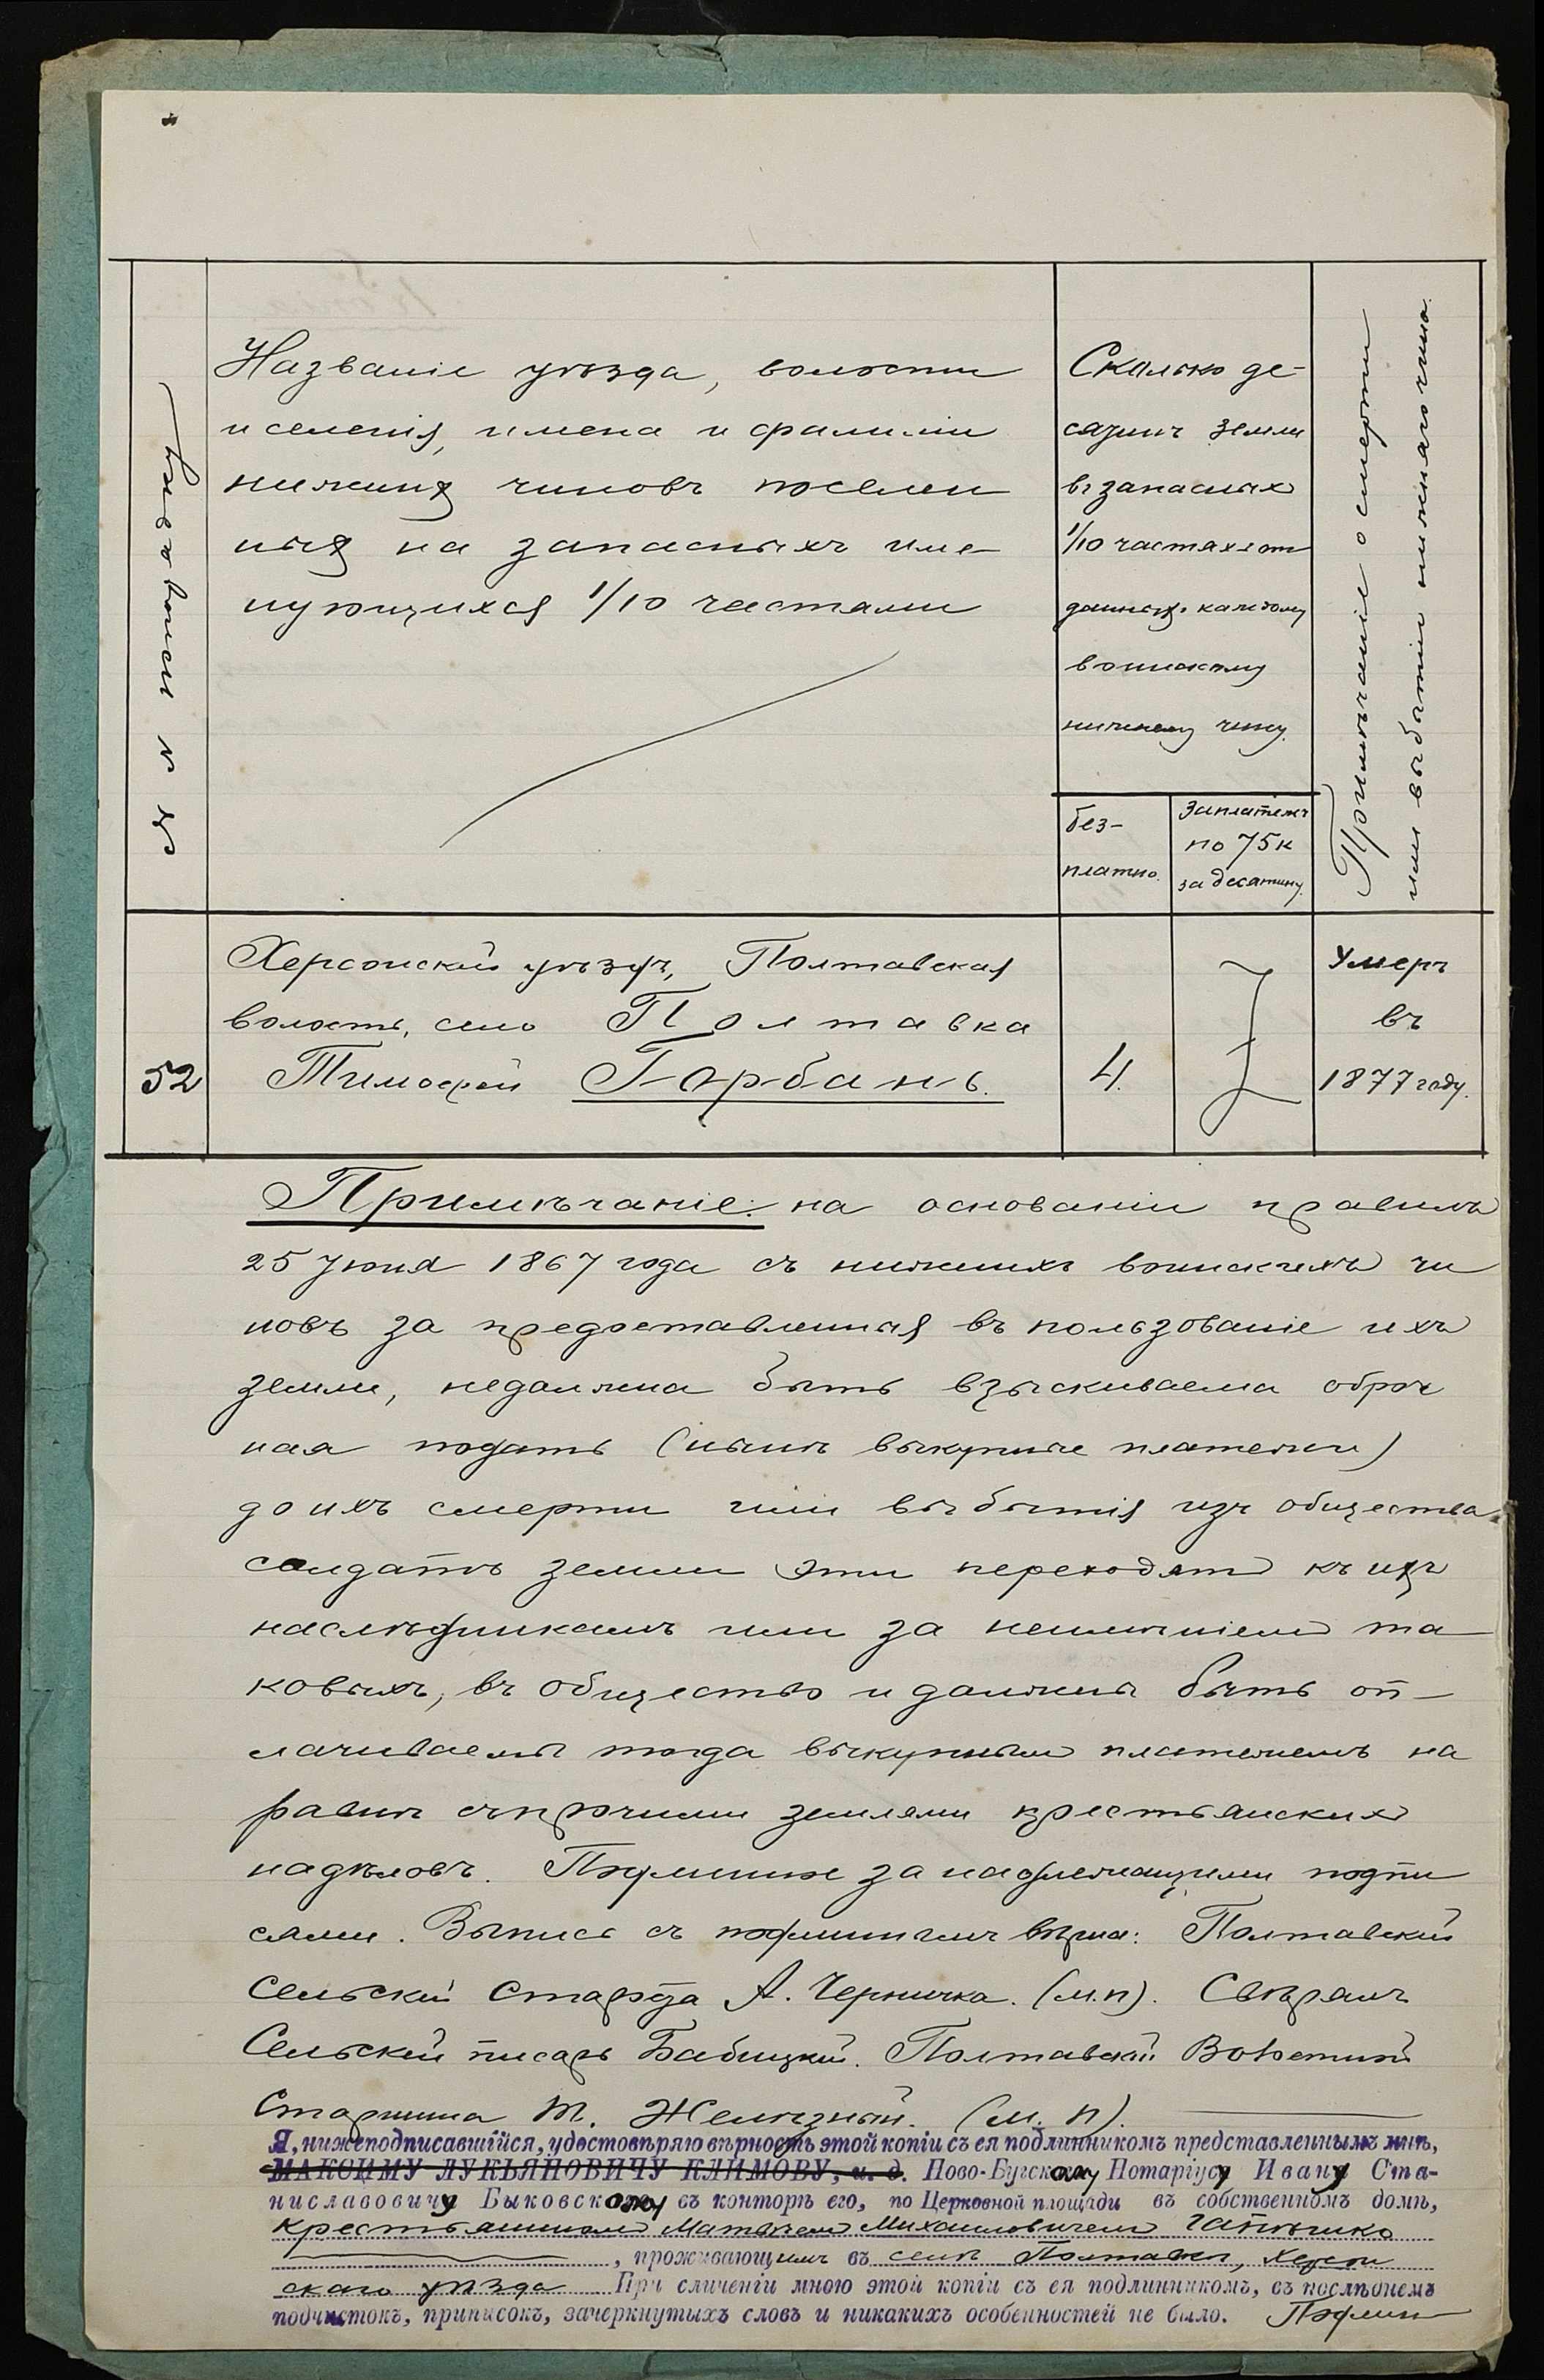 №№ по именному
Названіе уѣзда, волости
и селенія, имена и фамиліи
нижних чиновъ поселен
ных на запасныхъ име-
нующихся 1/10 частями
Сколько де-
сятинъ земли
въ запасных
1/10 частяхъ от
данныхъ каждому
воинскому
нижнему чину.
без-
платно.
За платежъ
по 75 к
за десятину.
Примѣчаніе о смерти
или выбытіи нижняго чина.
Херсонскій уѣздъ, Полтавская
волость, село Полтавка
52 Тимофей Горбань. 4.
Умеръ
въ
1877 году.
Примѣчаніе: на основаніи правилъ
25 Іюня 1867 года съ нижнихъ воинскихъ чи
новъ за предоставленныя въ пользованіе ихъ
земли, не должна быть взыскиваема оброч
ная подать (нынѣ выкупные платежи)
до ихъ смерти или выбытія изъ общества
солдатъ земли эти переходятъ къ ихъ
наслѣдникамъ или за неимѣніемъ та
ковыхъ, въ общество и должны быть оп-
лачиваемы тогда выкупнымъ платежемъ на
равнѣ съ прочими землями крестьянскихъ
надѣловъ. Подлинное за надлежащими подпи
сями. Выпись съ подлиннымъ вѣрна: Полтавскій
Сельскій Староста А. Черничка. (м.п). Свѣрялъ
Сельскій писарь Бабицкій. Полтавскій Волостной
Старшина Т. Желѣзный. (м. п).
Я, нижеподписавшійся, удостовѣряю вѣрность этой копіи съ ея подлинникомъ представленнымъ мнѣ,
МАКСИМУ ЛУКЬЯНОВИЧУ КЛИМОВУ, и. д. Ново-Бугскому Нотаріусу Ивану Ста-
ниславовичу Быковскому въ конторѣ его, по Церковной площади въ собственномъ домѣ,
крестьяниномъ Матвѣемъ Михайловичемъ
, проживающимъ въ селѣ Полтавкѣ, Херсон
скаго уѣзда При сличеніи мною этой копіи съ ея подлинникомъ, въ послѣднемъ
подчистокъ, приписокъ, зачеркнутыхъ словъ и никакихъ особенностей не было. Подлин